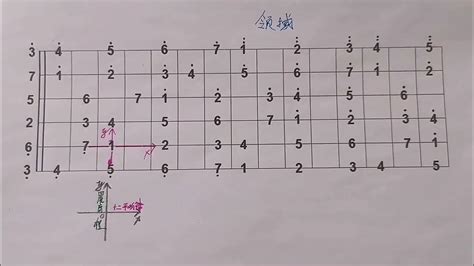 领域
3 4 5 6 7 1 2 3 4 5
7 1 2 3 4 5 6 7 1 2
5 6 7 1 2 3 4 5 6
2 3 4 5 6 7 1 2 3 4
y
6 7 1 2 3 4 5 6 7 1
x
3 4 5 6 7 1 2 3 4 5
y
十二平均律
x